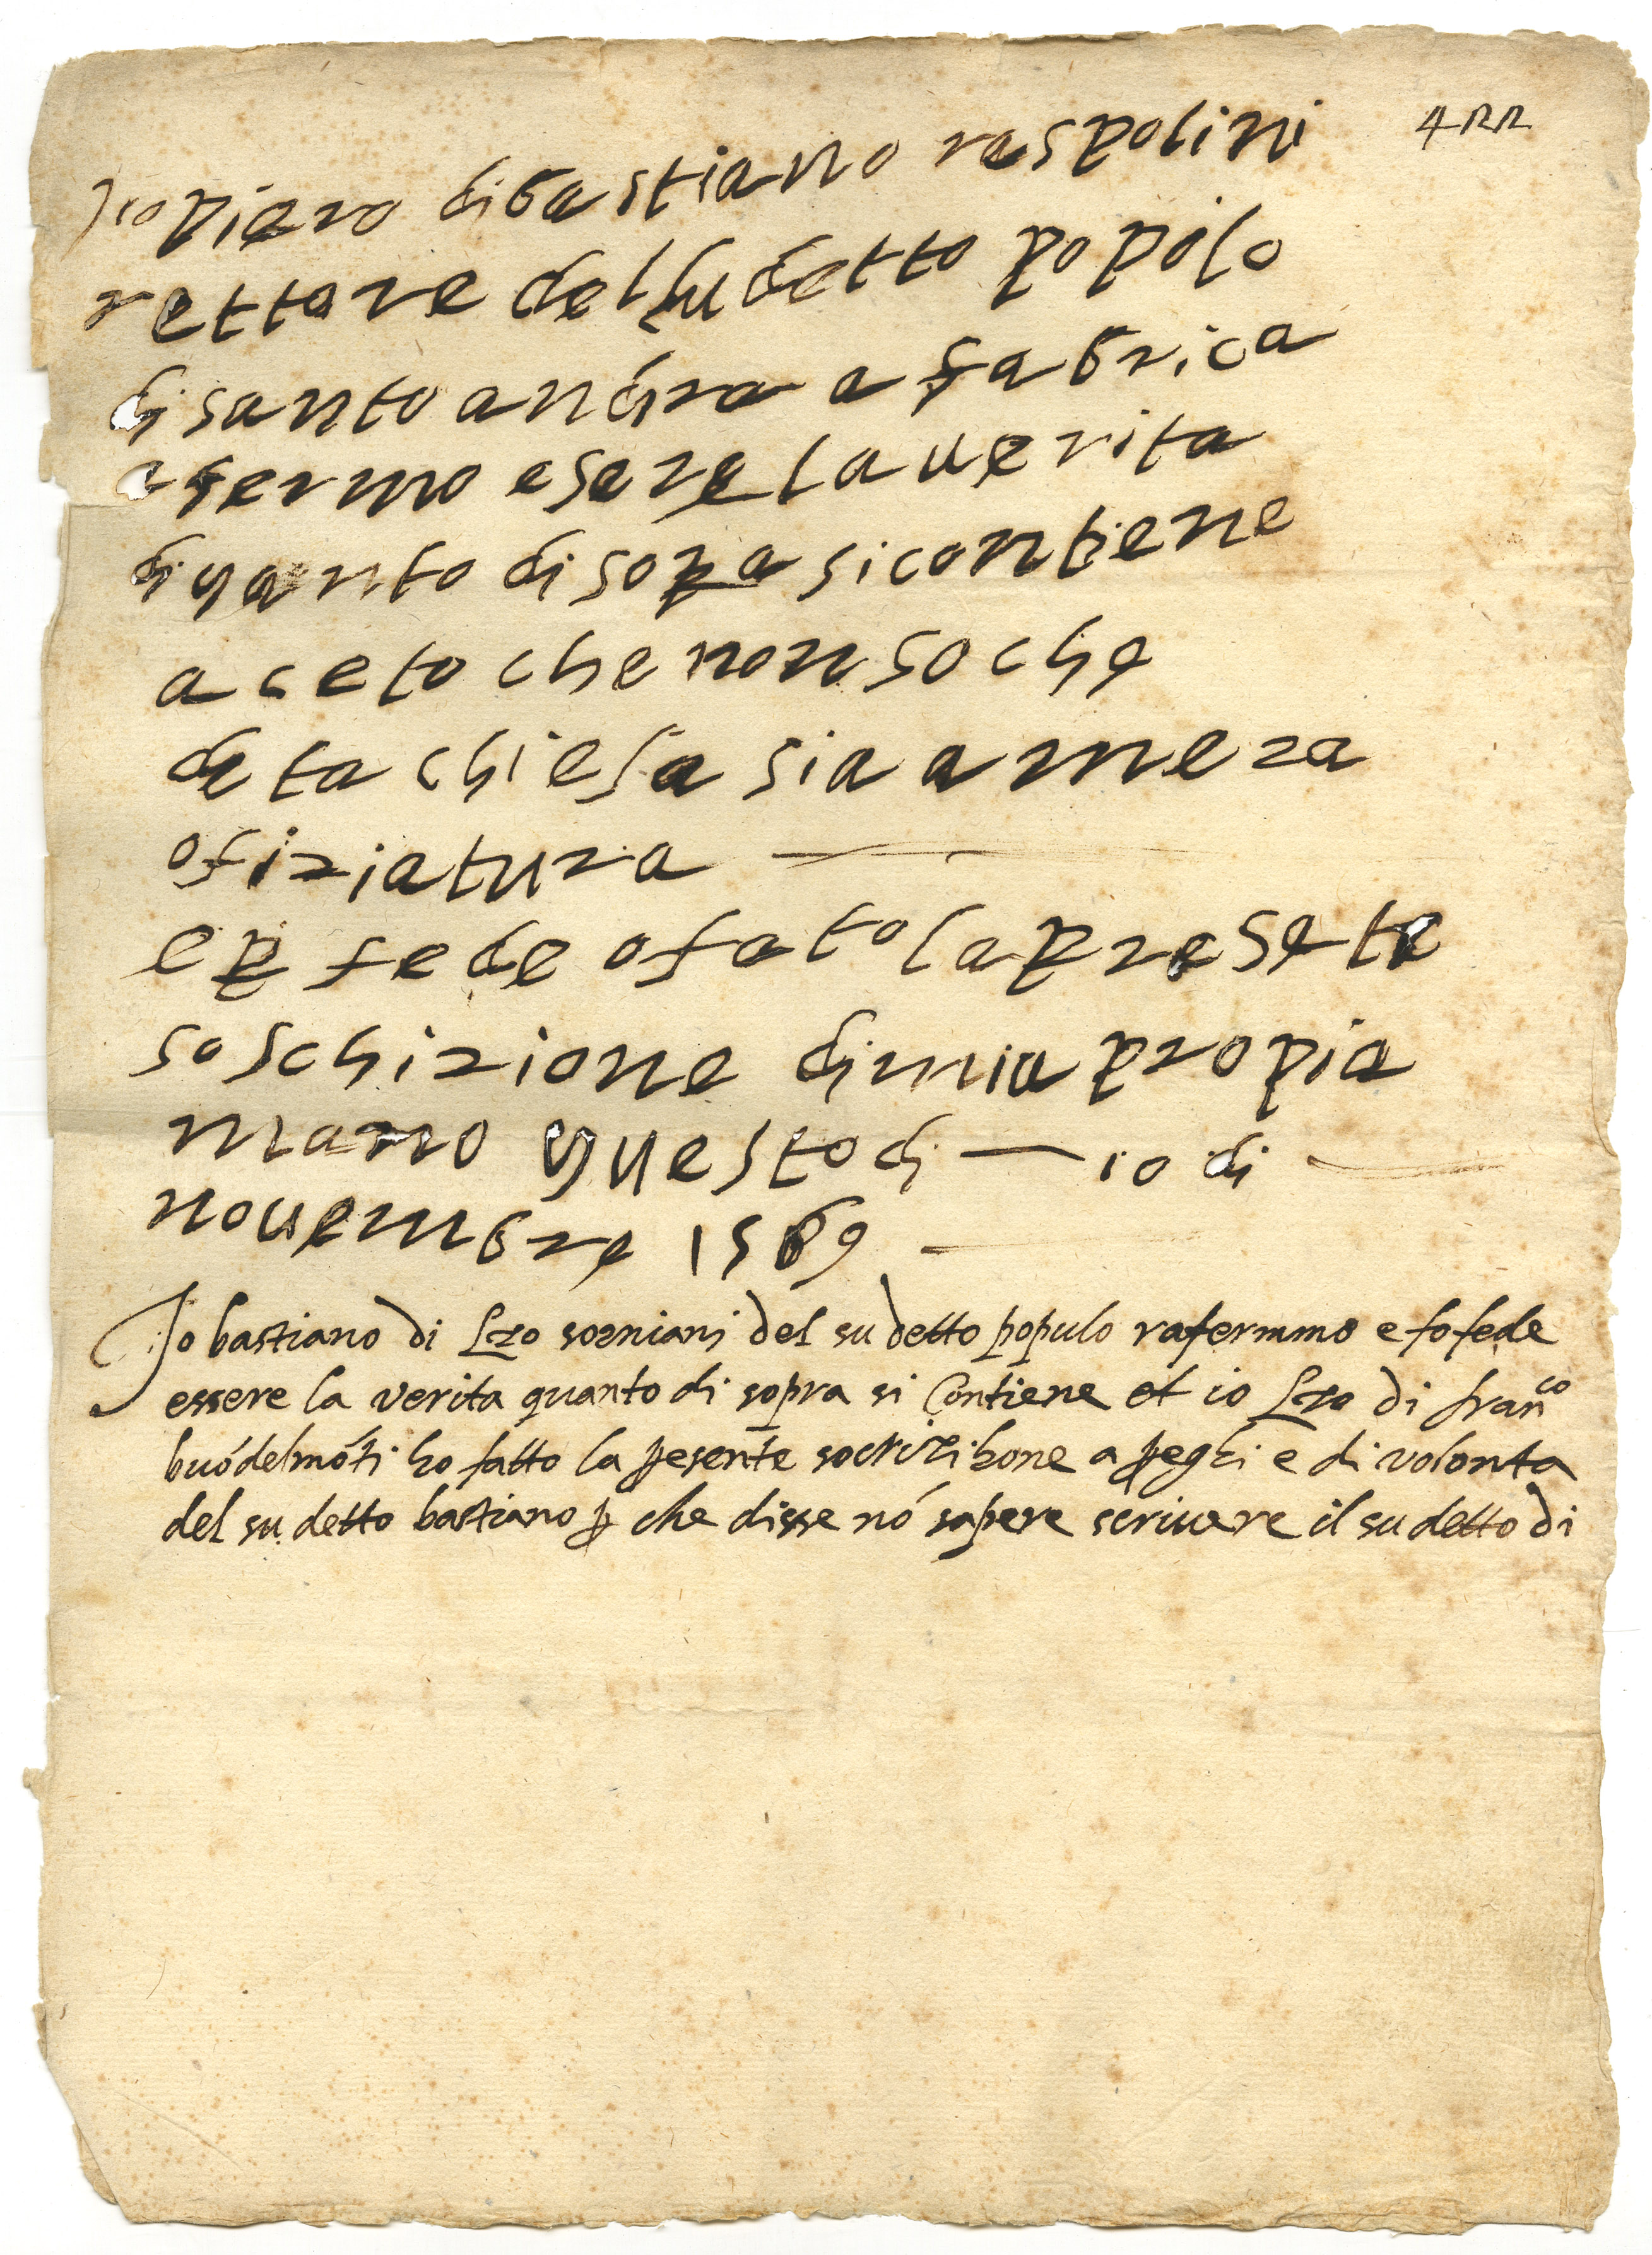 422
Jio piero di bastiano raspolini
rettore del su detto popolo
di santo andrea a fabrica
afermo esere la uerita
di quanto di sopra si contiene
aceto che non so che
deta chiesa sia a meza
ofiziatura
e p fede o fato la presete
soschrizione di mia propia
mano questo di — 10 di —
nouembre 1569
Jo bastiano di Lzo sorniani del su detto populo rafermmo e fo fede
essere la verita quanto di sopra si Contiene et io Lzo di franco
buódelmóti ho fatto la pesente a peghi e di volonta
del su detto bastiano p che disse nó sapere scriuere il su detto di